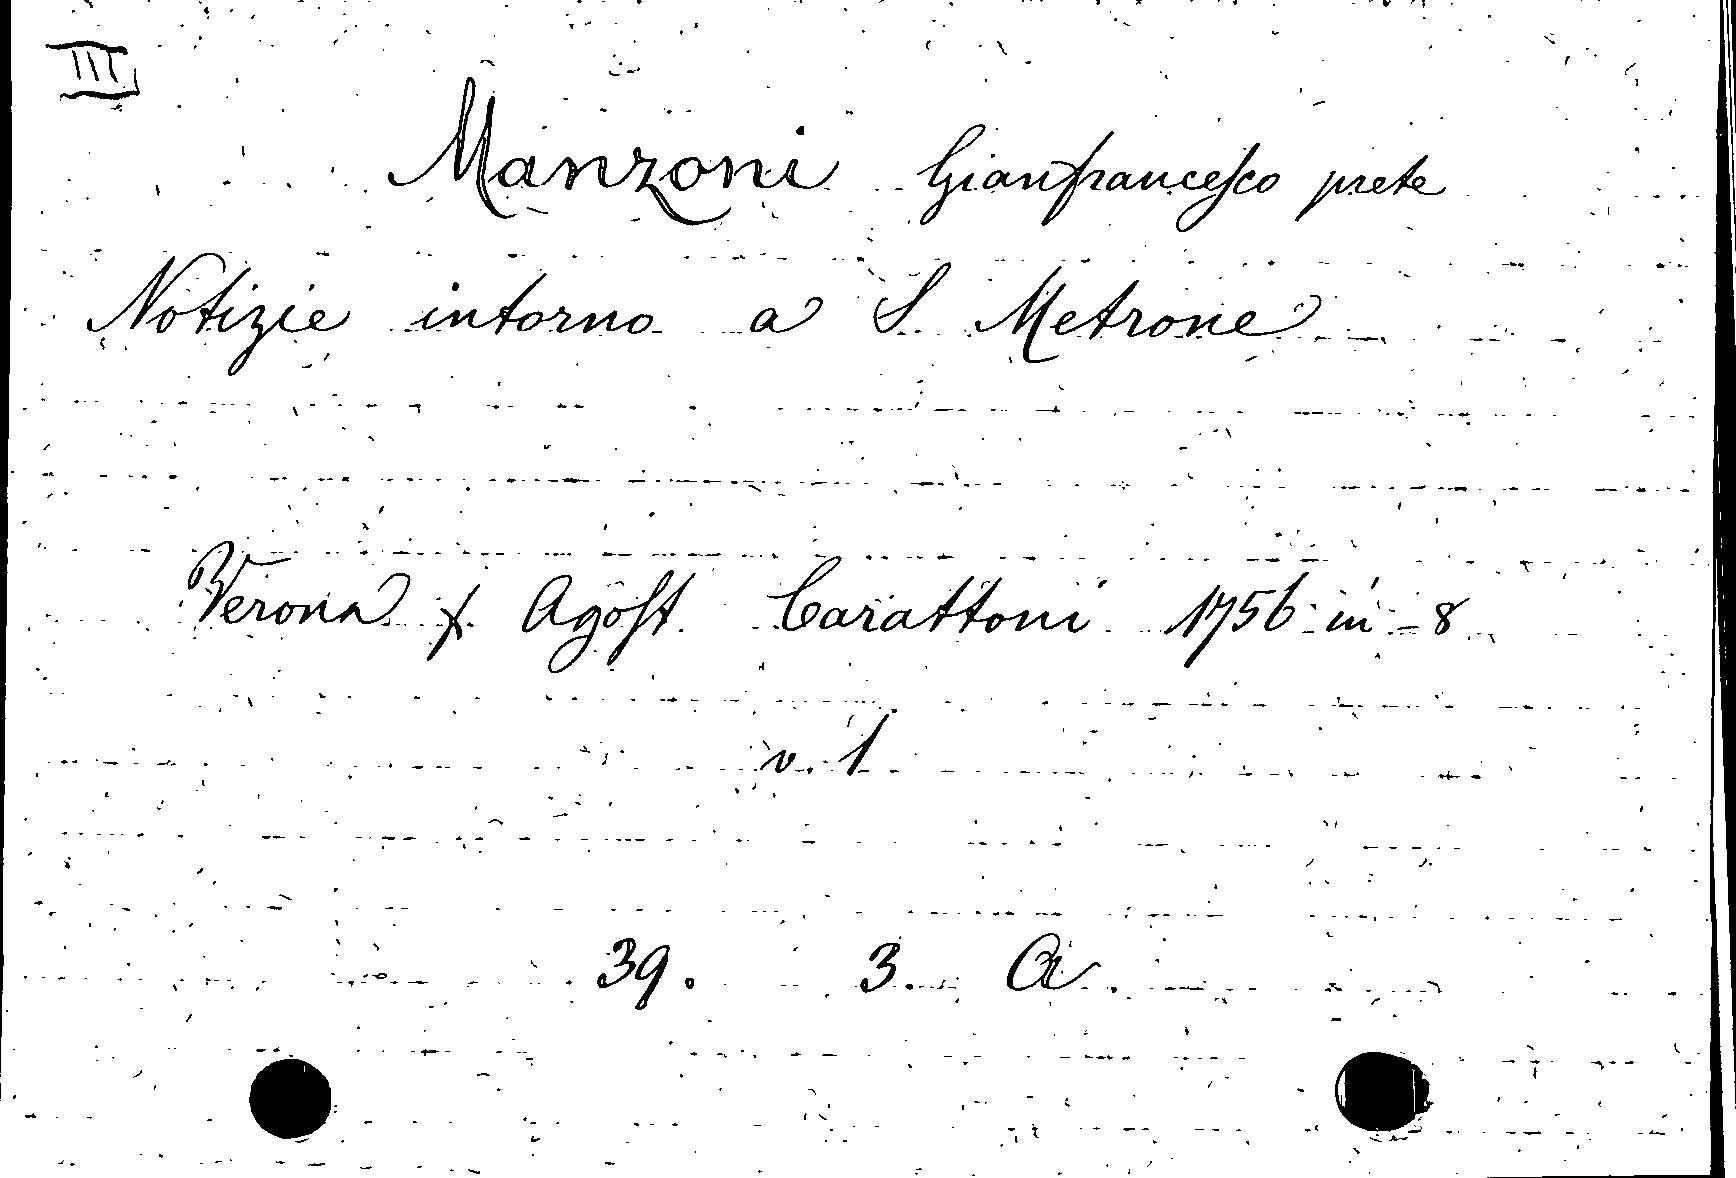 III
Manzoni Gianfrancesco prete
Notizie intorno a S. Metrone
Verona f. Agost. Carattoni 1756 in - 8
v. 1
39. 3. A.